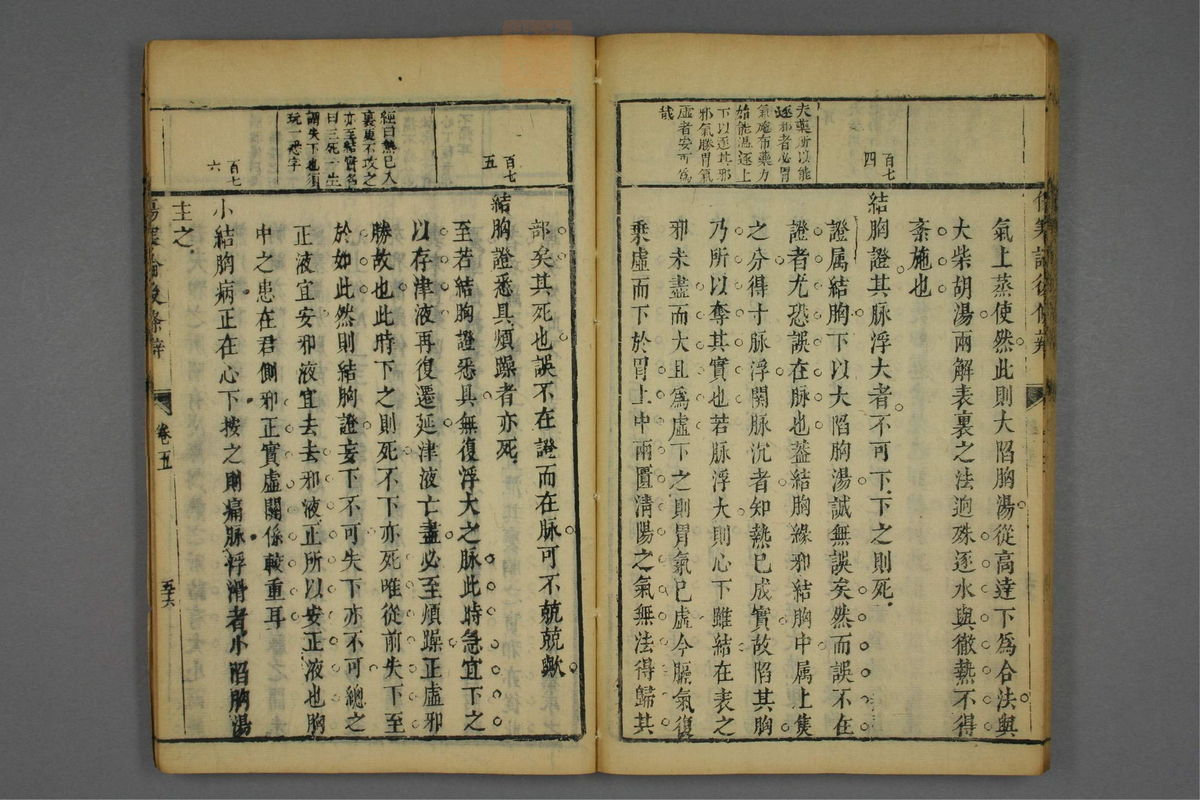 夫藥所以能
逐邪者必胃
氣施布藥力
始能温逐上
下以逐其邪
邪氣勝胃氣
虛者安可為
哉
百七
四
氣上蒸使然此則大陷胸湯從高達下為合法與
大柴胡湯兩解表裏之法迥殊逐水與徹熱不得
紊施也
結胸證其脉浮大者不可下下之則死
證属結胸下以大陷胸湯誠無誤矣然而誤不在
證者尤恐誤在脉也葢結胸緣邪結胸中属上焦
之分得寸脉浮関脉沉者知熱已成實故陷其胸
乃所以奪其實也若脉浮大則心下雖結在表之
邪未盡而大且為虛下之則胃氣已虛今膈氣復
乘虛而下於胃上中兩匱清陽之氣無法得歸其
百七
五
經曰熱已入
裏更不攻之
亦至結實名
曰三死一生
謂失下也須
玩一悉字
百七
六
部矣其死也誤不在證而在脉可不兢兢歟
結胸證悉具煩躁者亦死
至若結胸證悉具無復浮大之脉此時急宜下之
以存津液再復遷延津液亡盡必至煩躁正虛邪
勝故也此時下之則死不下亦死唯從前失下至
於如此然則結胸證妄下不可失下亦不可總之
正液宜安邪液宜去去邪液正所以安正液也胸
中之患在君側邪正實虛關係較重耳
小結胸病正在心下按之則痛脉浮滑者小陷胸湯
主之
傷寒論後條辨
卷五
五十六